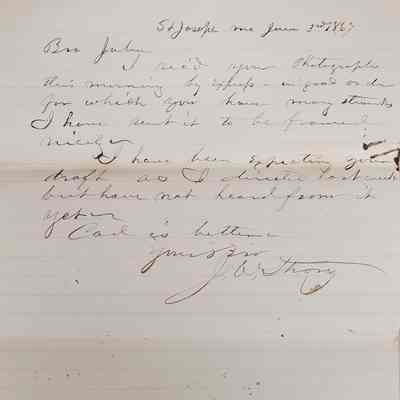 St Joseph Mo 3rd 1867
Bro
I rec'd your Photographs
this morning by express in good order
for which you have many thanks
I have sent it to be framed
nicely
I have been expecting your
draft as I directed last week
but have not heard from it
yet
is better
Your Bro
J.